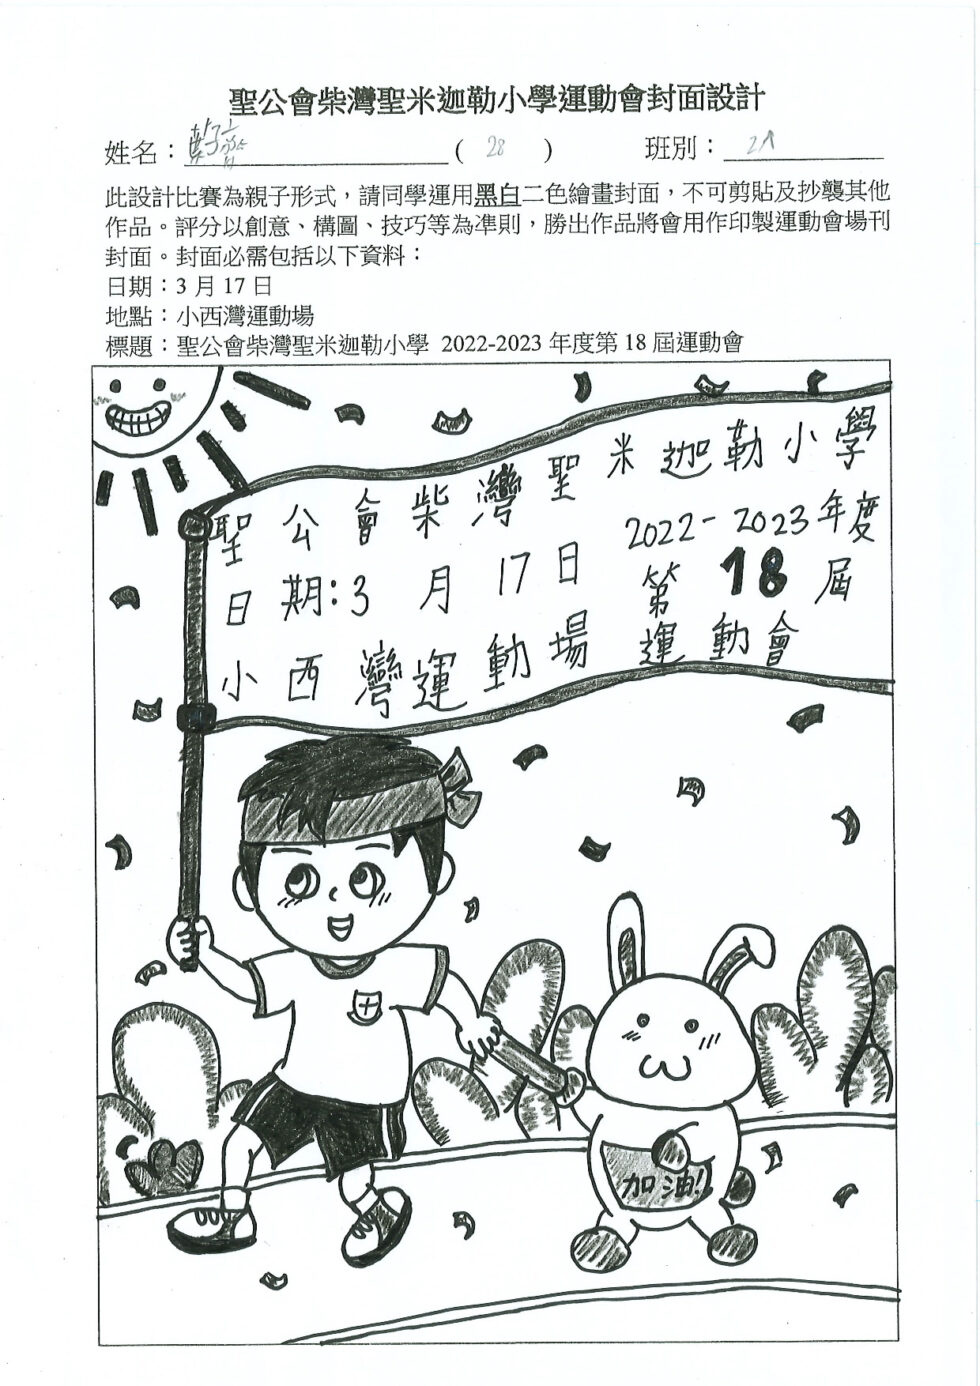 聖公會柴灣聖米迦勒小學運動會封面設計
姓名： ( 28 ) 班別： 2A
此設計比賽為親子形式，請同學運用黑白二色繪畫封面，不可剪貼及抄襲其他
作品。評分以創意、構圖、技巧等為準則，勝出作品將會用作印製運動會場刊
封面。封面必需包括以下資料：
日期：3 月 17 日
地點：小西灣運動場
標題：聖公會柴灣聖米迦勒小學 2022-2023 年度第 18 屆運動會
聖公會柴灣聖米迦勒小學
2022-2023年度
日期:3月17日 第18屆
小西灣運動場 運動會
加油!